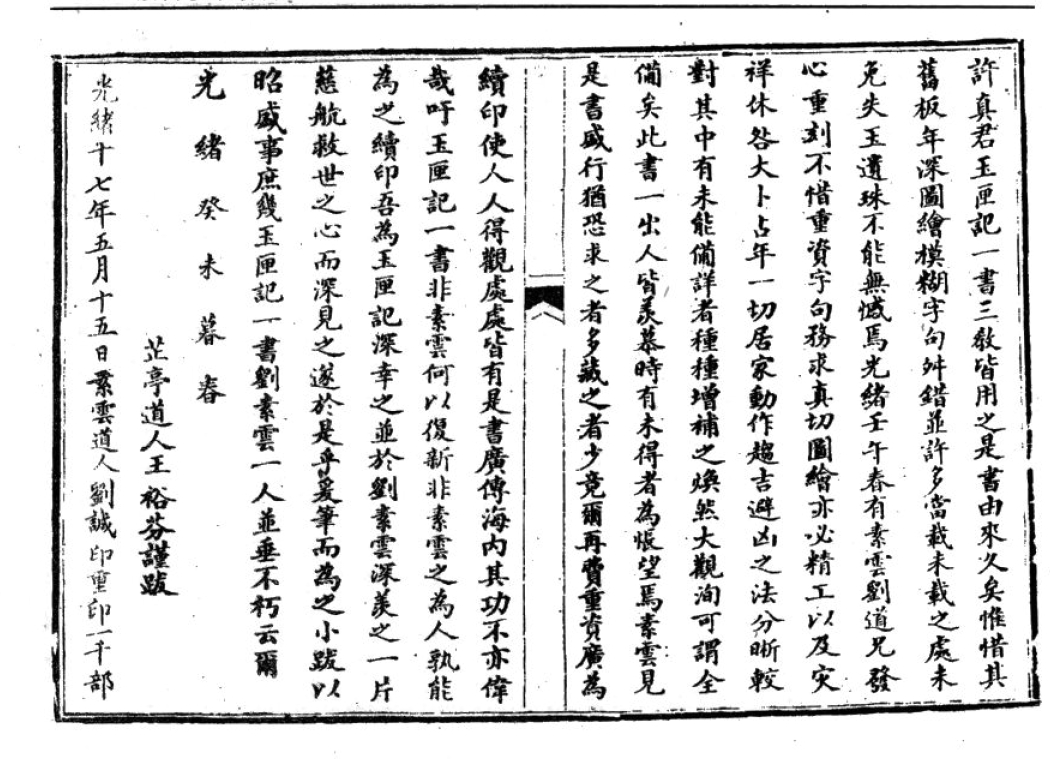 許真君玉匣記一書三教皆用之是書由來久矣惟惜其
舊板年深圖繪模糊字句舛錯並許多當載未載之處未
免失玉遺珠不能無憾焉光緒壬午春有素雲劉道兄發
心重刻不惜重資字句務求真切圖繪亦必精工以及灾
祥休咎大卜占年一切居家動作趨吉避凶之法分晰較
對其中有未能備詳者種種增補之煥然大觀洵可謂全
備矣此書一出人皆羨慕時有未得者為悵望焉素雲見
是書盛行猶恐求之者多藏之者少竟爾再費重資廣為
續印使人人得觀處處皆有是書廣傳海内其功不亦偉
哉吁玉匣記一書非素雲何以復新非素雲之為人孰能
為之續印吾為玉匣記深幸之並於劉素雲深羨之一片
慈航救世之心而深見之遂於是乎爰筆而為之小跋以
昭盛事庶幾玉匣記一書劉素雲一人並垂不朽云爾
光緒癸未暮春
芷亭道人王裕芬謹跋
光緒十七年五月十五日素雲道人劉誠印重印一千部